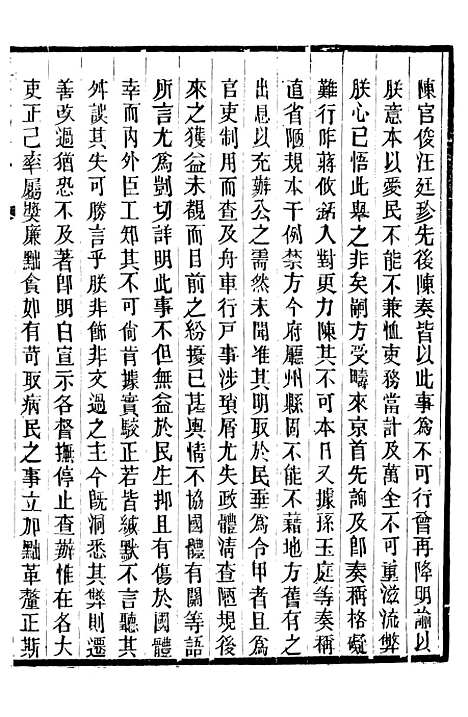 陳官俊汪廷珍先後陳奏皆以此事爲不可行會再降明諭以
朕意本以愛民不能不兼恤吏務當計及萬全不可重滋流弊
朕心已悟此舉之非矣嗣方受疇來京首先詢及卽奏稱格礙
難行昨蔣攸銛入對更力陳其不可本日又據孫玉庭等奏稱
直省陋規本干例禁方今府廳州縣固不能不藉地方舊有之
出息以充辦公之需然未聞准其明取於民垂爲令甲者且爲
官吏制用而查及舟車行戸事涉瑣屑尤失政體清查陋規後
來之獲益未覩而目前之紛擾已甚輿情不協國體有關等語
所言尤爲剴切詳明此事不但無益於民生抑且有傷於國體
幸而內外臣工知其不可尙肯據實駮正若皆緘默不言聽其
舛誤其失可勝言乎朕非飾非文過之主今旣洞悉其弊則遷
善改過猶恐不及著卽明白宣示各督撫停止查辦惟在各大
吏正己率屬獎廉黜貪如有苛取病民之事立加黜革釐正斯